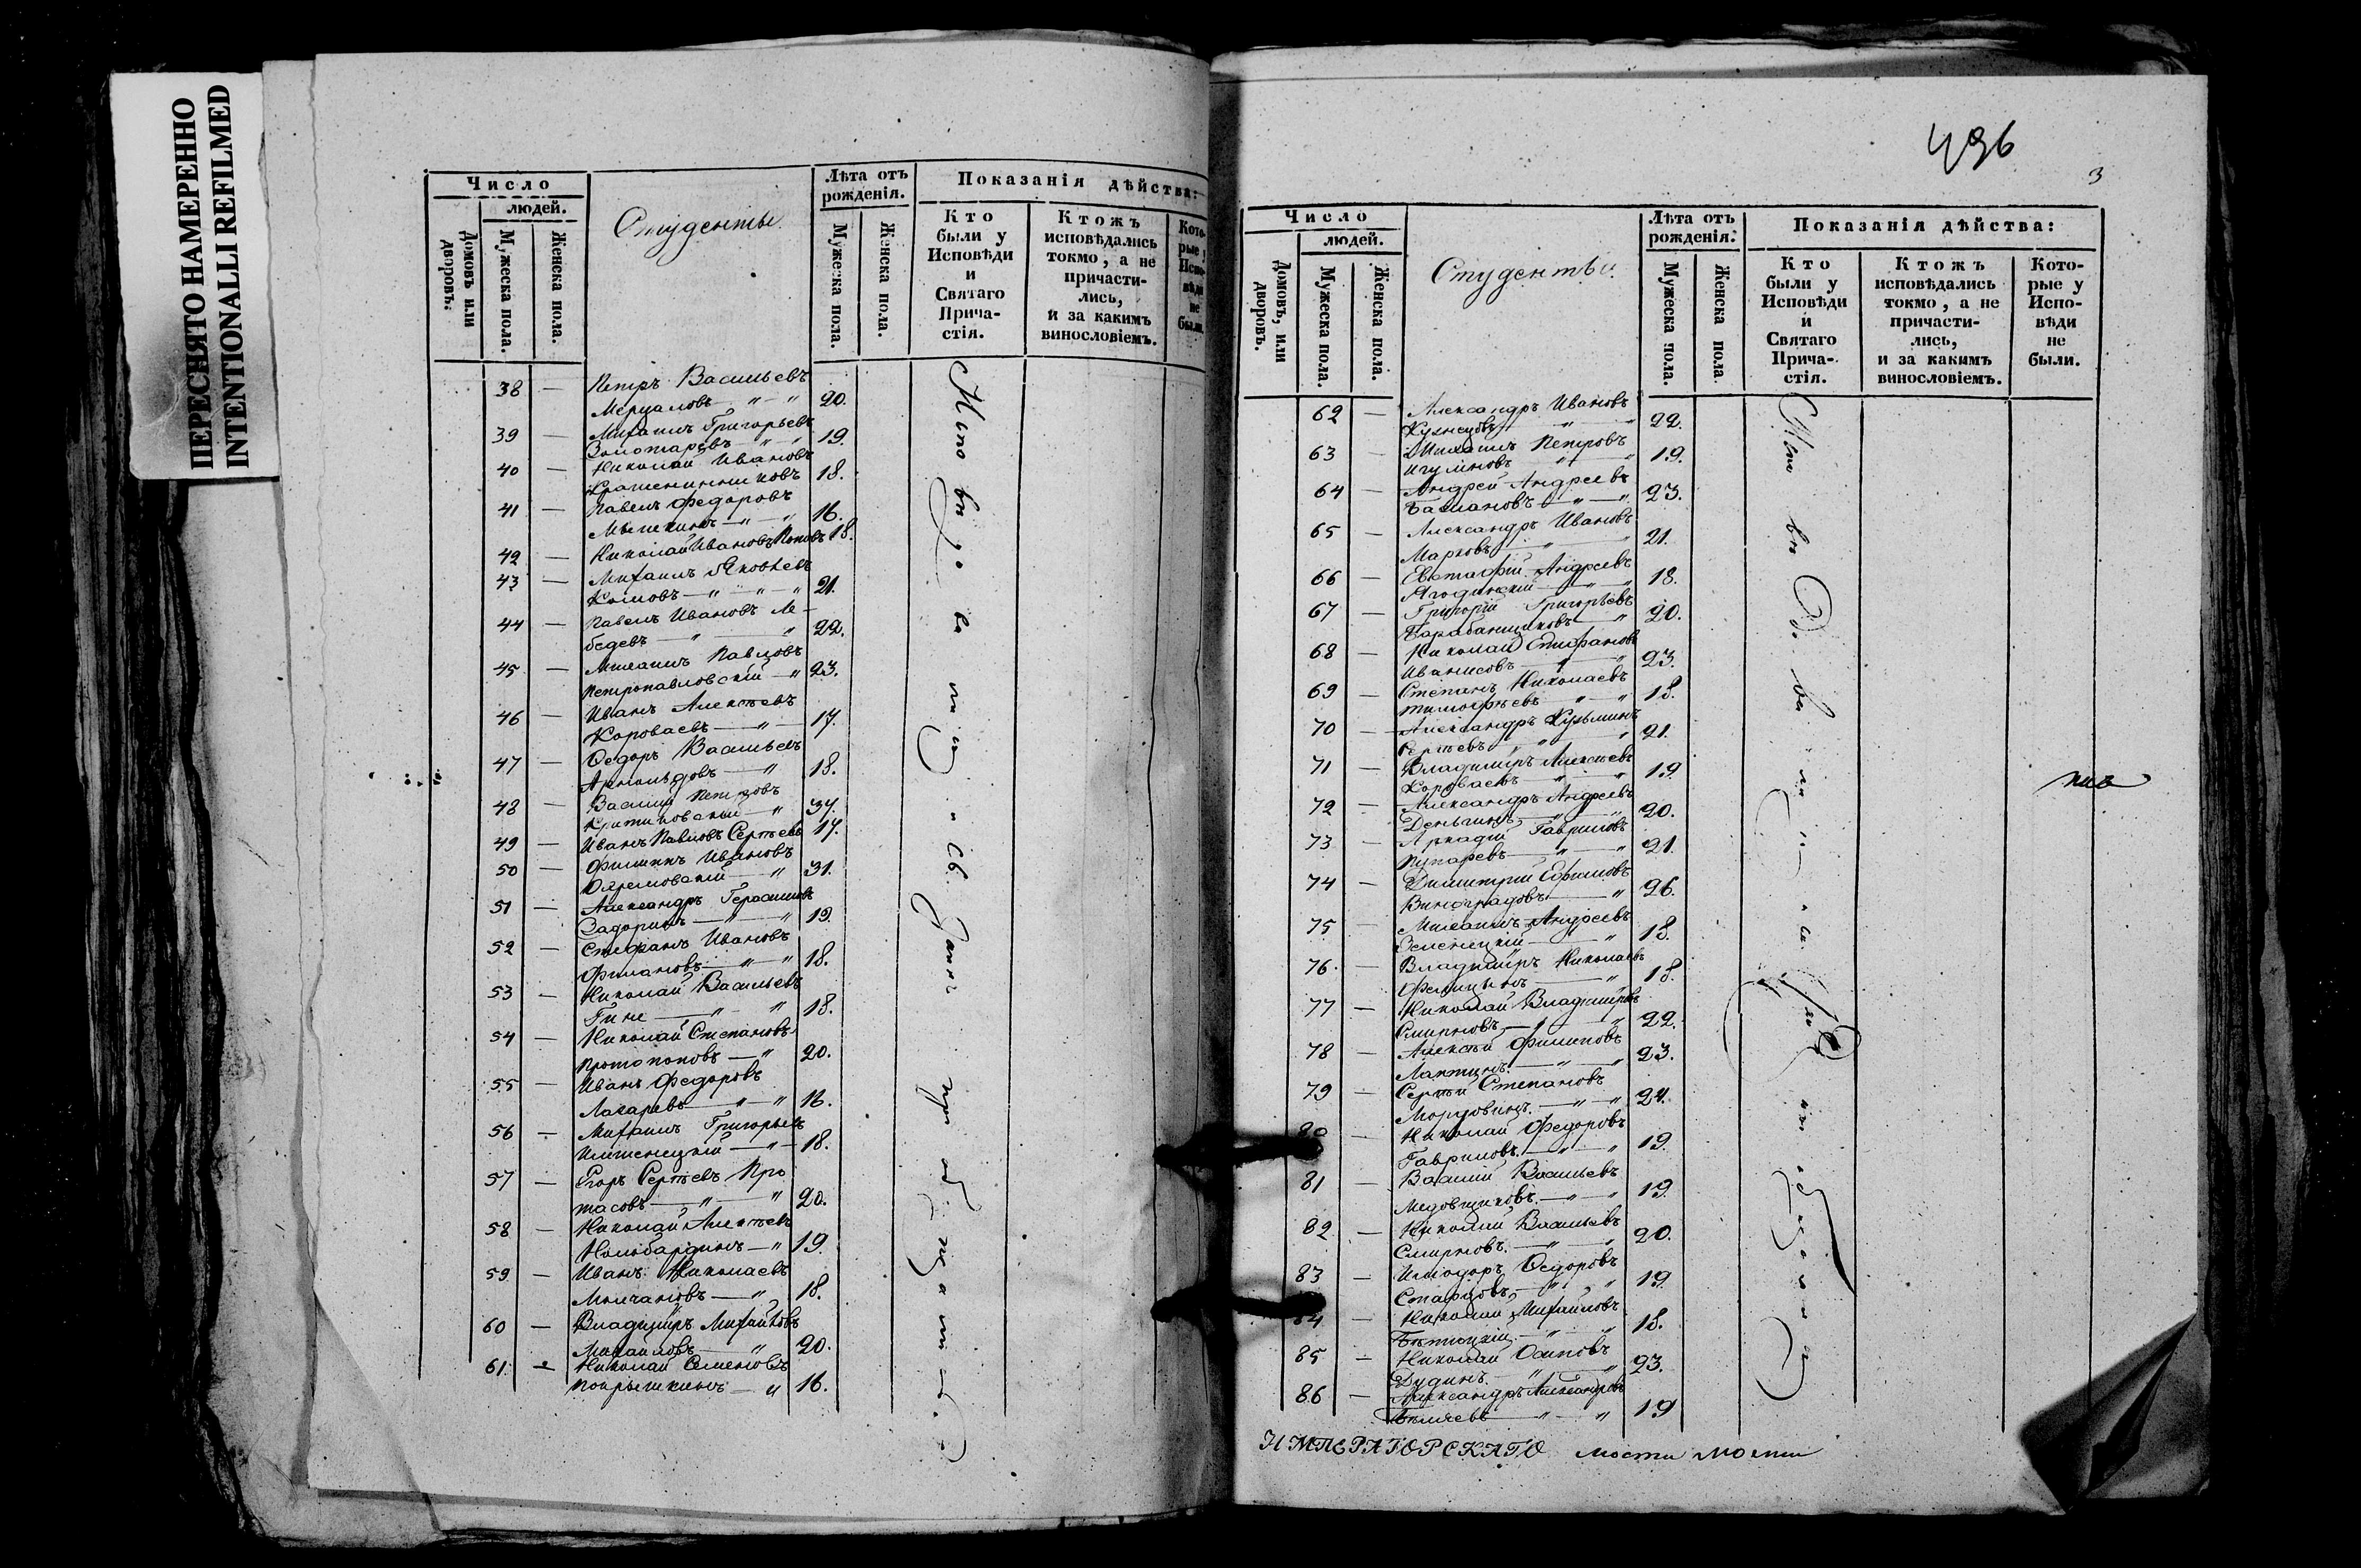 ПЕРЕСНЯТО НАМЕРЕННО
INTENTIONALLI REFILMED
Число
людей.
Домовъ или дворовъ.
Мужеска пола.
Женска пола.
Студенты
Лѣта отъ рожденія.
Мужеска пола.
Женска пола.
Показанія дѣйства:
Кто были у Исповѣди и Святаго Прича-стія.
Ктожъ исповѣдались токмо, а не причасти-лись, и за какимъ винословіемъ.
Кото-рые у Испо-вѣди не были.
38 — Петръ Васильевъ
Мерцаловъ — " — " 20.
39 — Михаилъ Григорьевъ
Золотаревъ — " — " 19.
40 — Николай Ивановъ
Крашенинниковъ 18.
41 — Павелъ Федоровъ
Мышкинъ — " — " 16.
42 — Николай Ивановъ Поповъ 18.
43 — Михаилъ Яковлевъ
Комовъ — " — " — " 21.
44 — Павелъ Ивановъ Ле-
бедевъ — " — " 22.
45 — Михаилъ Павловъ
Петропавловскій — " 23.
46 — Иванъ Алексѣевъ
Короваевъ — " — 17.
47 — Ѳедоръ Васильевъ
Арнольдовъ — " 18.
48 — Василій Петровъ
— " 37.
49 — Иванъ Павловъ Сергѣевъ 17.
50 — Филиппъ Ивановъ
— " 31.
51 — Александръ Герасимовъ
Задоринъ — " — " 19.
52 — Стефанъ Ивановъ
Филановъ — " — " 18.
53 — Николай Васильевъ
Гине — " — " 18.
54 — Николай Степановъ
Протопоповъ — " 20.
55 — Иванъ Федоровъ
Лазаревъ — " — " 16.
56 — Михаилъ Григорьевъ
— " — 18.
57 — Егоръ Сергѣевъ Про
тасовъ — " — " 20.
58 — Николай Алексѣевъ
— " 19.
59 — Иванъ Николаевъ
Молчановъ — " 18.
60 — Владиміръ Михайловъ
Михайловъ — " 20.
61. — Николай Семеновъ
Покрышкинъ — " 16.
496
3
Число
людей.
Домовъ, или дворовъ.
Мужеска пола.
Женска пола.
Студенты.
Лѣта отъ рожденія.
Мужеска пола.
Женска пола
Показанія дѣйства:
Кто были у Исповѣди и Святаго Прича-стія.
Ктожъ исповѣдались токмо, а не причасти-лись, и за какимъ винословіемъ.
Кото-рые у Испо-вѣди не были.
62 — Александръ Ивановъ
Кузнецовъ " " 22.
63 — Михаилъ Петровъ
Игумновъ " — " 19.
64 — Андрей Андреевъ
Баклановъ — " — " 23.
65 — Александръ Ивановъ
Марковъ — " — " 21.
66 — Евстафій Андреевъ
Ягодинскій — " — " 18.
67 — Григорій Григорьевъ
Барабанщиковъ — " 20.
68 — Николай Стефановъ
Иванисовъ — " — " 23.
69 — Степанъ Николаевъ
Тимофѣевъ — " — " 18.
70 — Александръ Кузьминъ
Сергѣевъ — " — " 21.
71 — Владиміръ Алексѣевъ
Короваевъ — " — " 19
72 — Александръ Андреевъ
Деньгинъ — " — " 20.
73 — Аркадій Гавриловъ
Пупаревъ — " — " 21.
74 — Димитрій Ефимовъ
Виноградовъ — " 26.
75 — Михаилъ Андреевъ
Зеленецкій — " 18.
76. — Владиміръ Николаевъ
Фелицынъ — " 18.
77 — Николай Владиміровъ
Смирновъ — " — " 22.
78 — Алексѣй Филиповъ
Лаптинъ — " — " 23.
79 — Сергѣй Степановъ
Мордвинъ. — " — " 24.
80 — Николай Федоровъ
Гавриловъ. — " — " 19.
81 — Василій Васильевъ
Медовщиковъ. — " — " 19.
82 — Николай Васильевъ
Смирновъ. — " — " 20.
83 — Иліодоръ Ѳедоровъ
Старцовъ. — " — " 19.
84 — Николай Михайловъ
— " — " 18.
85 — Николай Осиповъ
Дудинъ. — " — " 23.
86 — Александръ Александровъ
Бѣляевъ — " — " 19
ИМПЕРАТОРСКАГО